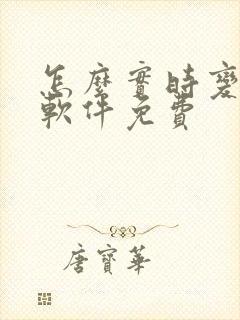 怎麼實時變
軟件免費
唐寶華